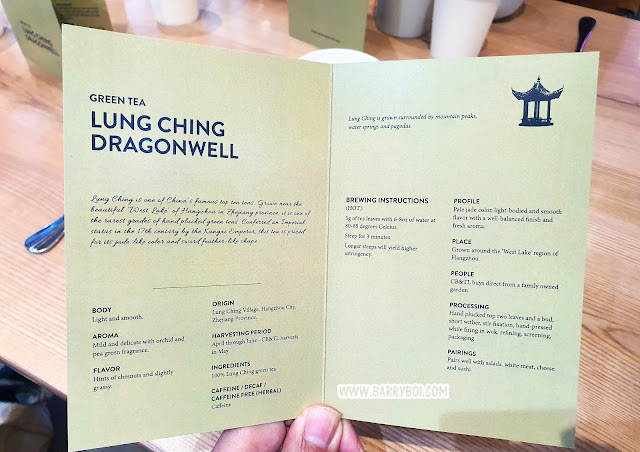 GREEN TEA
LUNG CHING
DRAGONWELL
Lung Ching is one of China's famous top ten teas. Grown near the
beautiful "West Lake" of Hangzhou in Zhejiang province, it is one of
the rarest grades of hand plucked green teas. Conferred an Imperial
status in the 17th century by the Kangxi Emperor, this tea is prized
for its jade-like color and sword feather-like shape.
BODY
Light and smooth.
AROMA
Mild and delicate with orchid and
pea green fragrance.
FLAVOR
Hints of chestnuts and slightly
grassy.
ORIGIN
Lung Ching Village, Hangzhou City,
Zhejiang Province.
HARVESTING PERIOD
April through June - CB&TL harvests
in May
INGREDIENTS
100% Lung Ching green tea
CAFFEINE / DECAF /
CAFFEINE FREE (HERBAL)
Caffeine
Lung Ching is grown surrounded by mountain peaks,
water springs and pagodas.
BREWING INSTRUCTIONS
(HOT)
3g of tea leaves with 6-8oz of water at
80-85 degrees Celcius.
Steep for 3 minutes.
Longer steeps will yield higher
astringency.
PROFILE
Pale jade color, light-bodied and smooth
flavor with a well-balanced finish and
fresh aroma.
PLACE
Grown around the "West Lake" region of
Hangzhou.
PEOPLE
CB&TL buys direct from a family owned
garden.
PROCESSING
Hand plucked top two leaves and a bud,
short wither, stir fixation, hand-pressed
while firing in wok, refining, screening,
packaging.
PAIRINGS
Pairs well with salads, white meat, cheese
and sushi.
WWW.BARRYBOI.COM